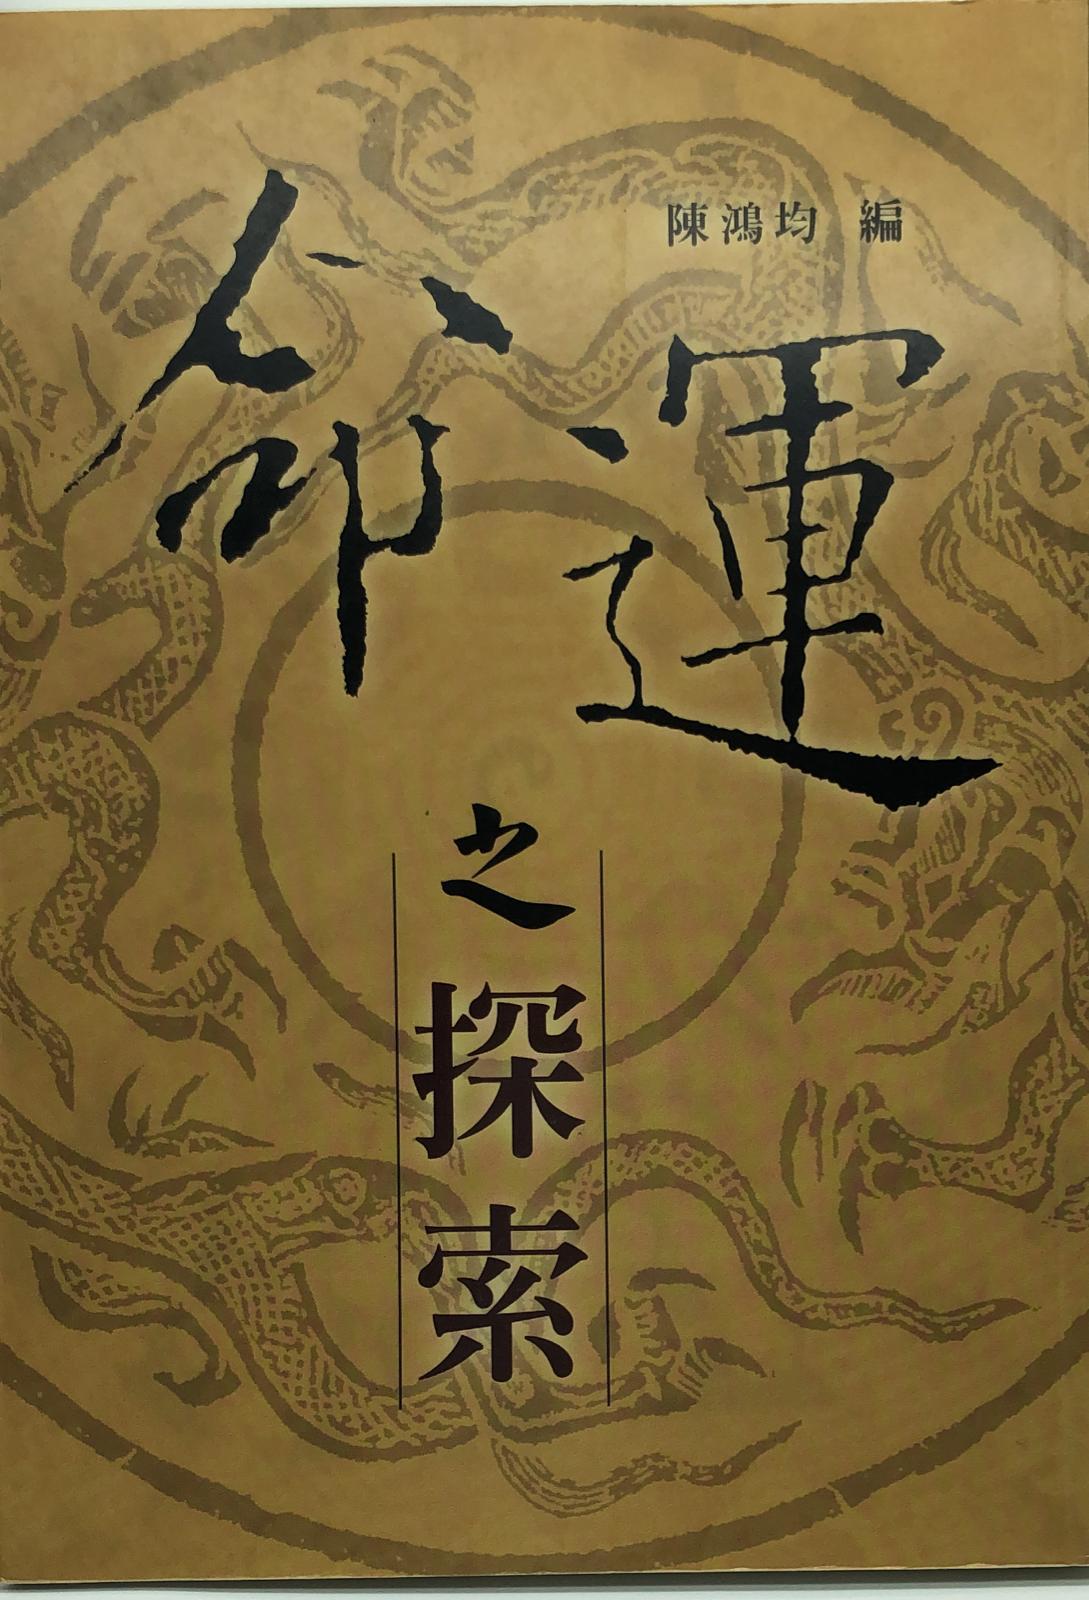 陳鴻均 編
命運
之
探索